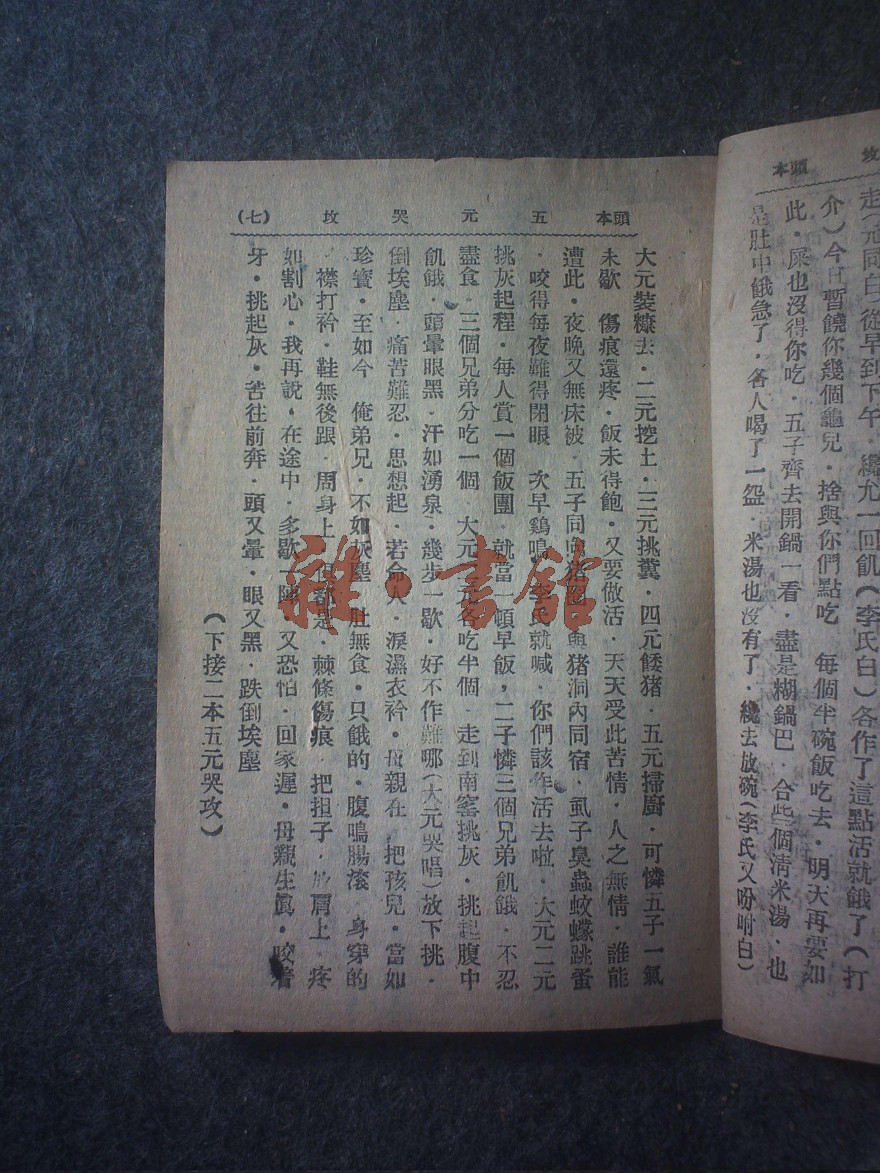 攻 頭本
走(元同白)從早到下午·纔尤一回飢(李氏白)各作了這點活就餓了(打
介)今日暫饒你幾個龜兒·捨與你們點吃 每個半碗飯吃去·明天再要如
此·屎也沒得你吃·五子齊去開鍋一看·盡是糊鍋巴·合些個清米湯·也
是肚中餓急了·各人喝了一盌·米湯也沒有了·纔去放碗(李氏又吩咐白)
頭本 五元哭攻 (七)
大元裝糠去·二元挖土·三元挑糞·四元餧猪·五元掃廚·可憐五子一氣
未歇 傷痕還疼·飯未得飽·又要做活·天天受此苦情·人之無情·誰能
遭此·夜晚又無床被·五子同向猪圈與猪洞內同宿·虱子臭蟲蚊蠓跳蚤
·咬得每夜難得閉眼 次早鷄鳴·李氏就喊·你們該作活去啦·大元二元
挑灰起程·每人賞一個飯團·就當一頓早飯,二子憐三個兄弟飢餓·不忍
盡食·三個兄弟分吃一個·大元二元各吃半個·走到南窰挑灰·挑起腹中
飢餓·頭暈眼黑·汗如湧泉·幾步一歇·好不作難哪(大元哭唱)放下挑·
倒埃塵·痛苦難忍·思想起·若命人·淚濕衣衿·母親在·把孩兒·當如
珍寶·至如今 俺弟兄·不如灰塵 肚無食·只餓的·腹鳴腸滚 身穿的
·襟打衿·鞋無後跟·周身上·俱都是·棘條傷痕·把担子·放肩上·疼
如割心·我再說·在途中·多歇一陣·又恐怕·回家遲·母親生嗔·咬着
牙·挑起灰·苦往前奔·頭又暈·眼又黑·跌倒埃塵
(下接二本五元哭攻)
雜·書館